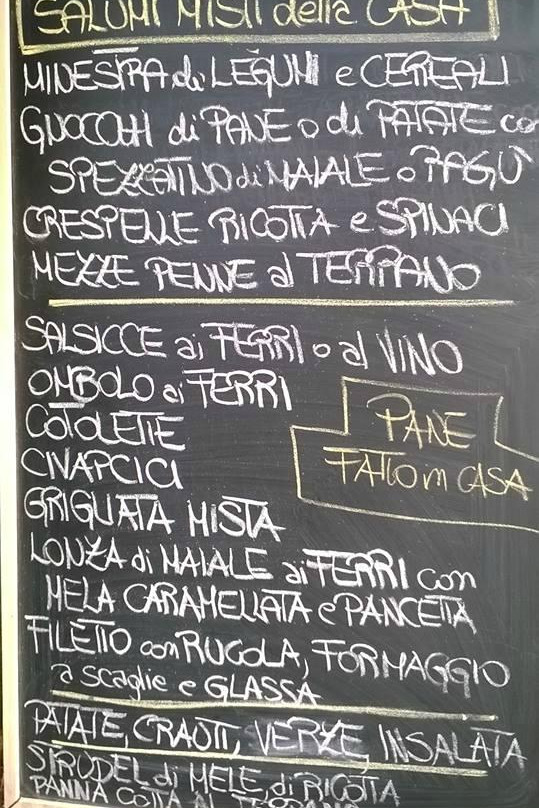 SALUMI MISTI della CASA
MINESTRA di LEGUMI e CEREALI
GNOCCHI di PANE o di PATATE co
SPEZZATINO di MAIALE o RAGÙ
CRESPELLE RICOTTA e SPINACI
MEZZE PENNE al TERRANO
SALSICCE ai FERRI o al VINO
OMBOLO ai FERRI
COTOLETTE
CIVAPCICI
PANE
FATTO in CASA
GRIGLIATA MISTA
LONZA di MAIALE ai FERRI con
MELA CARAMELLATA e PANCETTA
FILETTO con RUCOLA, FORMAGGIO
a scaglie e GLASSA
PATATE, CRAUTI, VERZE, INSALATA
STRUDEL di MELE, di RICOTTA
PANNA COTTA AL TERRANO